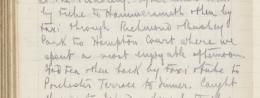 by tube to Hammersmith then by
taxi through Richmond & Bushey
Park to Hampton Court where we
spent a most enjoyable afternoon.
Had tea then back by taxi & tube to
Porchester Terrace to dinner. Caught